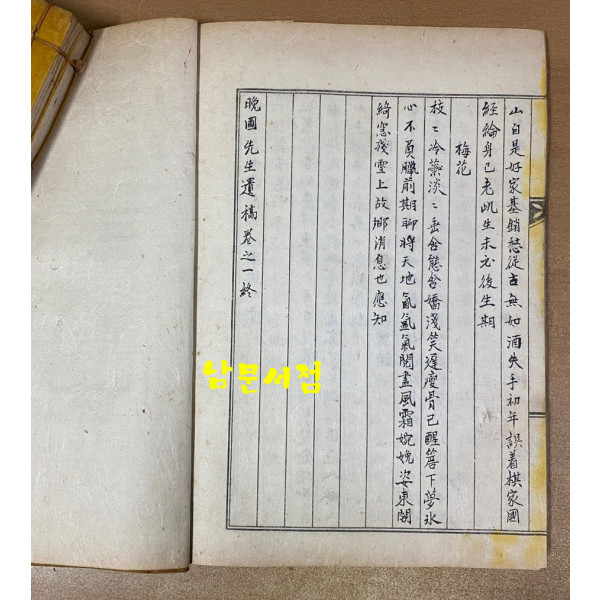 山自是好家基銷愁從古無如酒失手初年誤着棋家國
經綸身已老凱生未必後生期
梅花
枝〻冷蘂淡〻垂含態含嬌淺笑遲瘦骨已醒簷下夢氷
心不負臘前期聊將天地氤氳氣閱盡風霜婉娩姿東閣
綺窓殘雪上故鄉消息也應知
晚圃先生遺稿卷之一終
남문서점